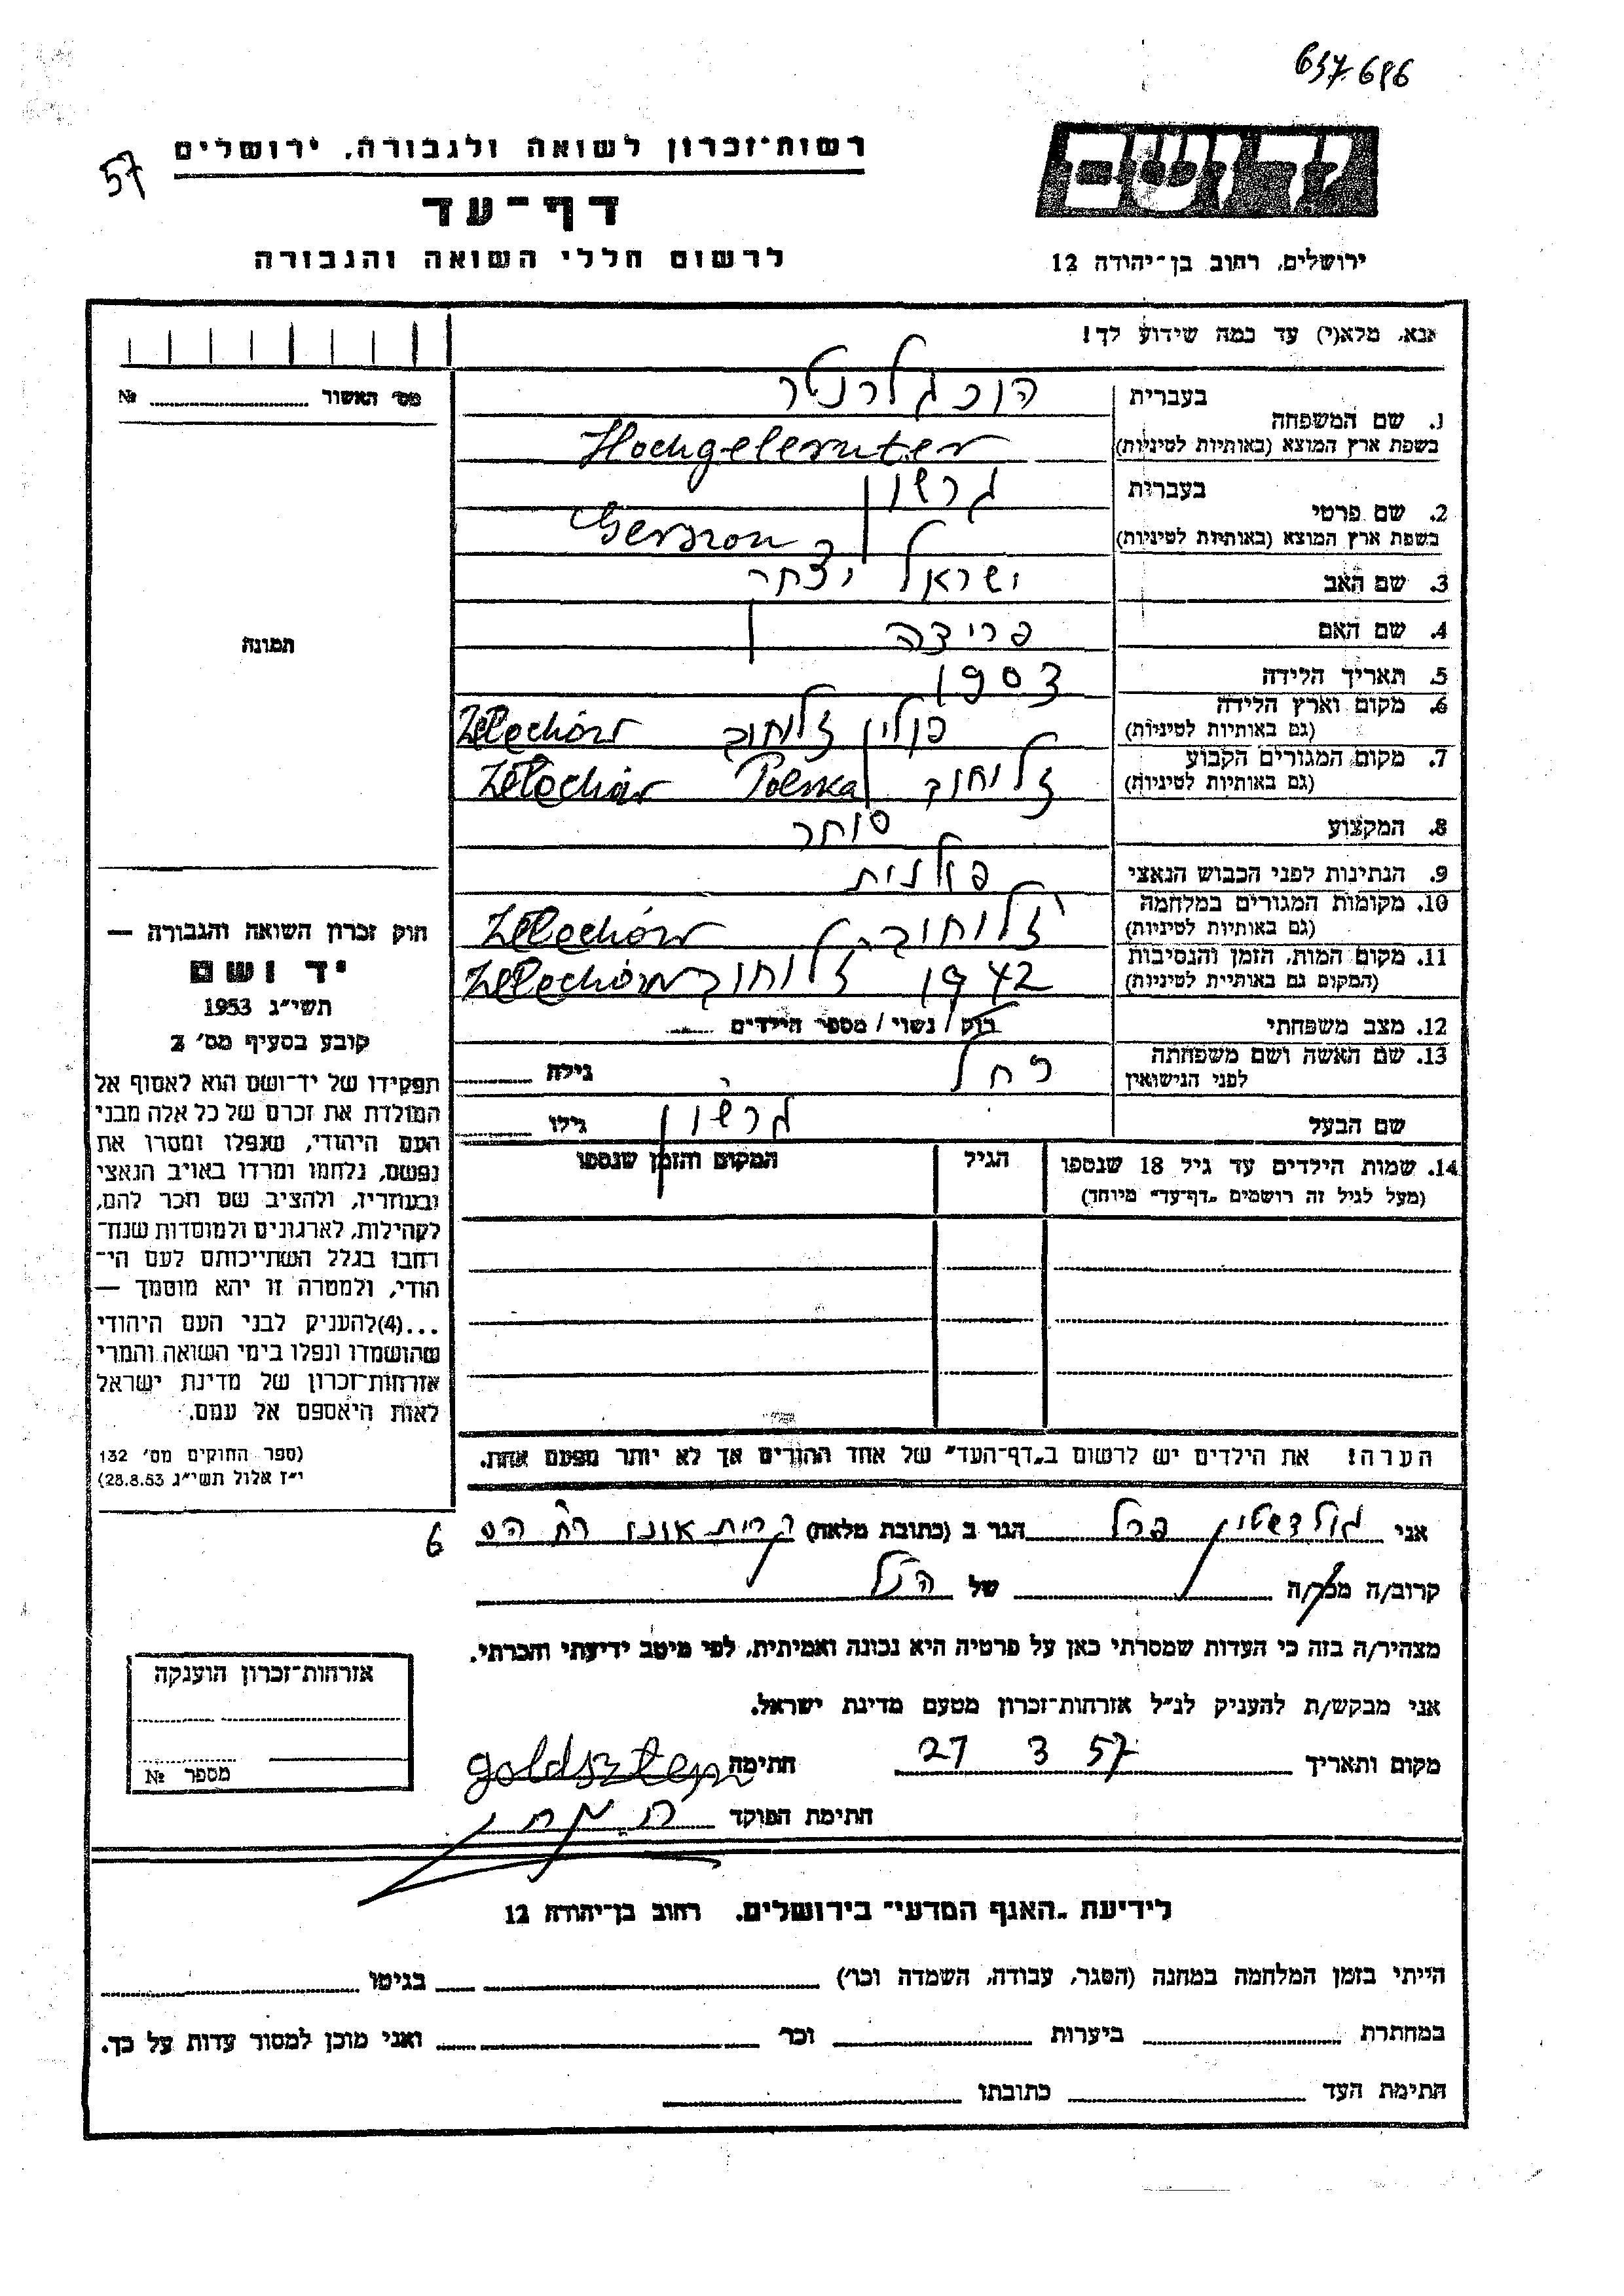 637.686
57
רשות־זכרון לשואה ולגבורה, ירושלים
דף־עד
לרשום חללי השואה והגבורה
יד ושם
ירושלים, רחוב בן־יהודה 12
אנא, מלא(י) עד כמה שידוע לך!
מס' האשור № 
תמונה
1. שם המשפחה בעברית הוכגלרנטר
בשפת ארץ המוצא (באותיות לטיניות) Hochgelernter
2. שם פרטי בעברית גרשון
בשפת ארץ המוצא (באותיות לטיניות) Gerszon
3. שם האב ישראל יצחק
4. שם האם פרידה
5. תאריך הלידה 1903
6. מקום וארץ הלידה (גם באותיות לטיניות) פולין זלוחוב Żelechów
7. מקום המגורים הקבוע (גם באותיות לטיניות) זלוחוב Polska Żelechów
8. המקצוע סוחר
9. הנתינות לפני הכבוש הנאצי פולנית
10. מקומות המגורים במלחמה (גם באותיות לטיניות) זלוחוב Żelechów
11. מקום המות, הזמן והנסיבות (המקום גם באותיות לטיניות) 1942 זלוחוב Żelechów
12. מצב משפחתי רווק / נשוי / מספר הילדים
13. שם האשה ושם משפחתה לפני הנישואין רחל גילה
שם הבעל גרשון גילו
14. שמות הילדים עד גיל 18 שנספו הגיל המקום והזמן שנספו
(מעל לגיל זה רושמים „דף־עד" מיוחד)
חוק זכרון השואה והגבורה —
יד ושם
תשי"ג 1953
קובע בסעיף מס' 2
תפקידו של יד־ושם הוא לאסוף אל
המולדת את זכרם של כל אלה מבני
העם היהודי, שנפלו ומסרו את
נפשם, נלחמו ומרדו באויב הנאצי
ובעוזריו, ולהציב שם וזכר להם,
לקהילות, לארגונים ולמוסדות שנח־
רבו בגלל השתייכותם לעם הי־
הודי, ולמטרה זו יהא מוסמך —
...(4) להעניק לבני העם היהודי
שהושמדו ונפלו בימי השואה והמרי
אזרחות־זכרון של מדינת ישראל
לאות היאספם אל עמם.
(ספר החוקים מס' 132
י"ז אלול תשי"ג 28.8.53)
הערה! את הילדים יש לרשום ב„דף־העד" של אחד ההורים אך לא יותר מפעם אחת.
אני גולדשטין פרל הגר ב (כתובת מלאה) קרית אונו רח' 6
קרוב/ה מכר/ה של הנ"ל
מצהיר/ה בזה כי העדות שמסרתי כאן על פרטיה היא נכונה ואמיתית, לפי מיטב ידיעתי והכרתי.
אני מבקש/ת להעניק לנ"ל אזרחות־זכרון מטעם מדינת ישראל.
מקום ותאריך 27 3 57 חתימה goldsztejn
חתימת הפוקד
אזרחות־זכרון הוענקה
מספר №
לידיעת „האגף המדעי" בירושלים, רחוב בן־יהודה 12
הייתי בזמן המלחמה במחנה (הסגר, עבודה, השמדה וכו') בגיטו
במחתרת ביערות וכו' ואני מוכן למסור עדות על כך.
חתימת העד כתובתו